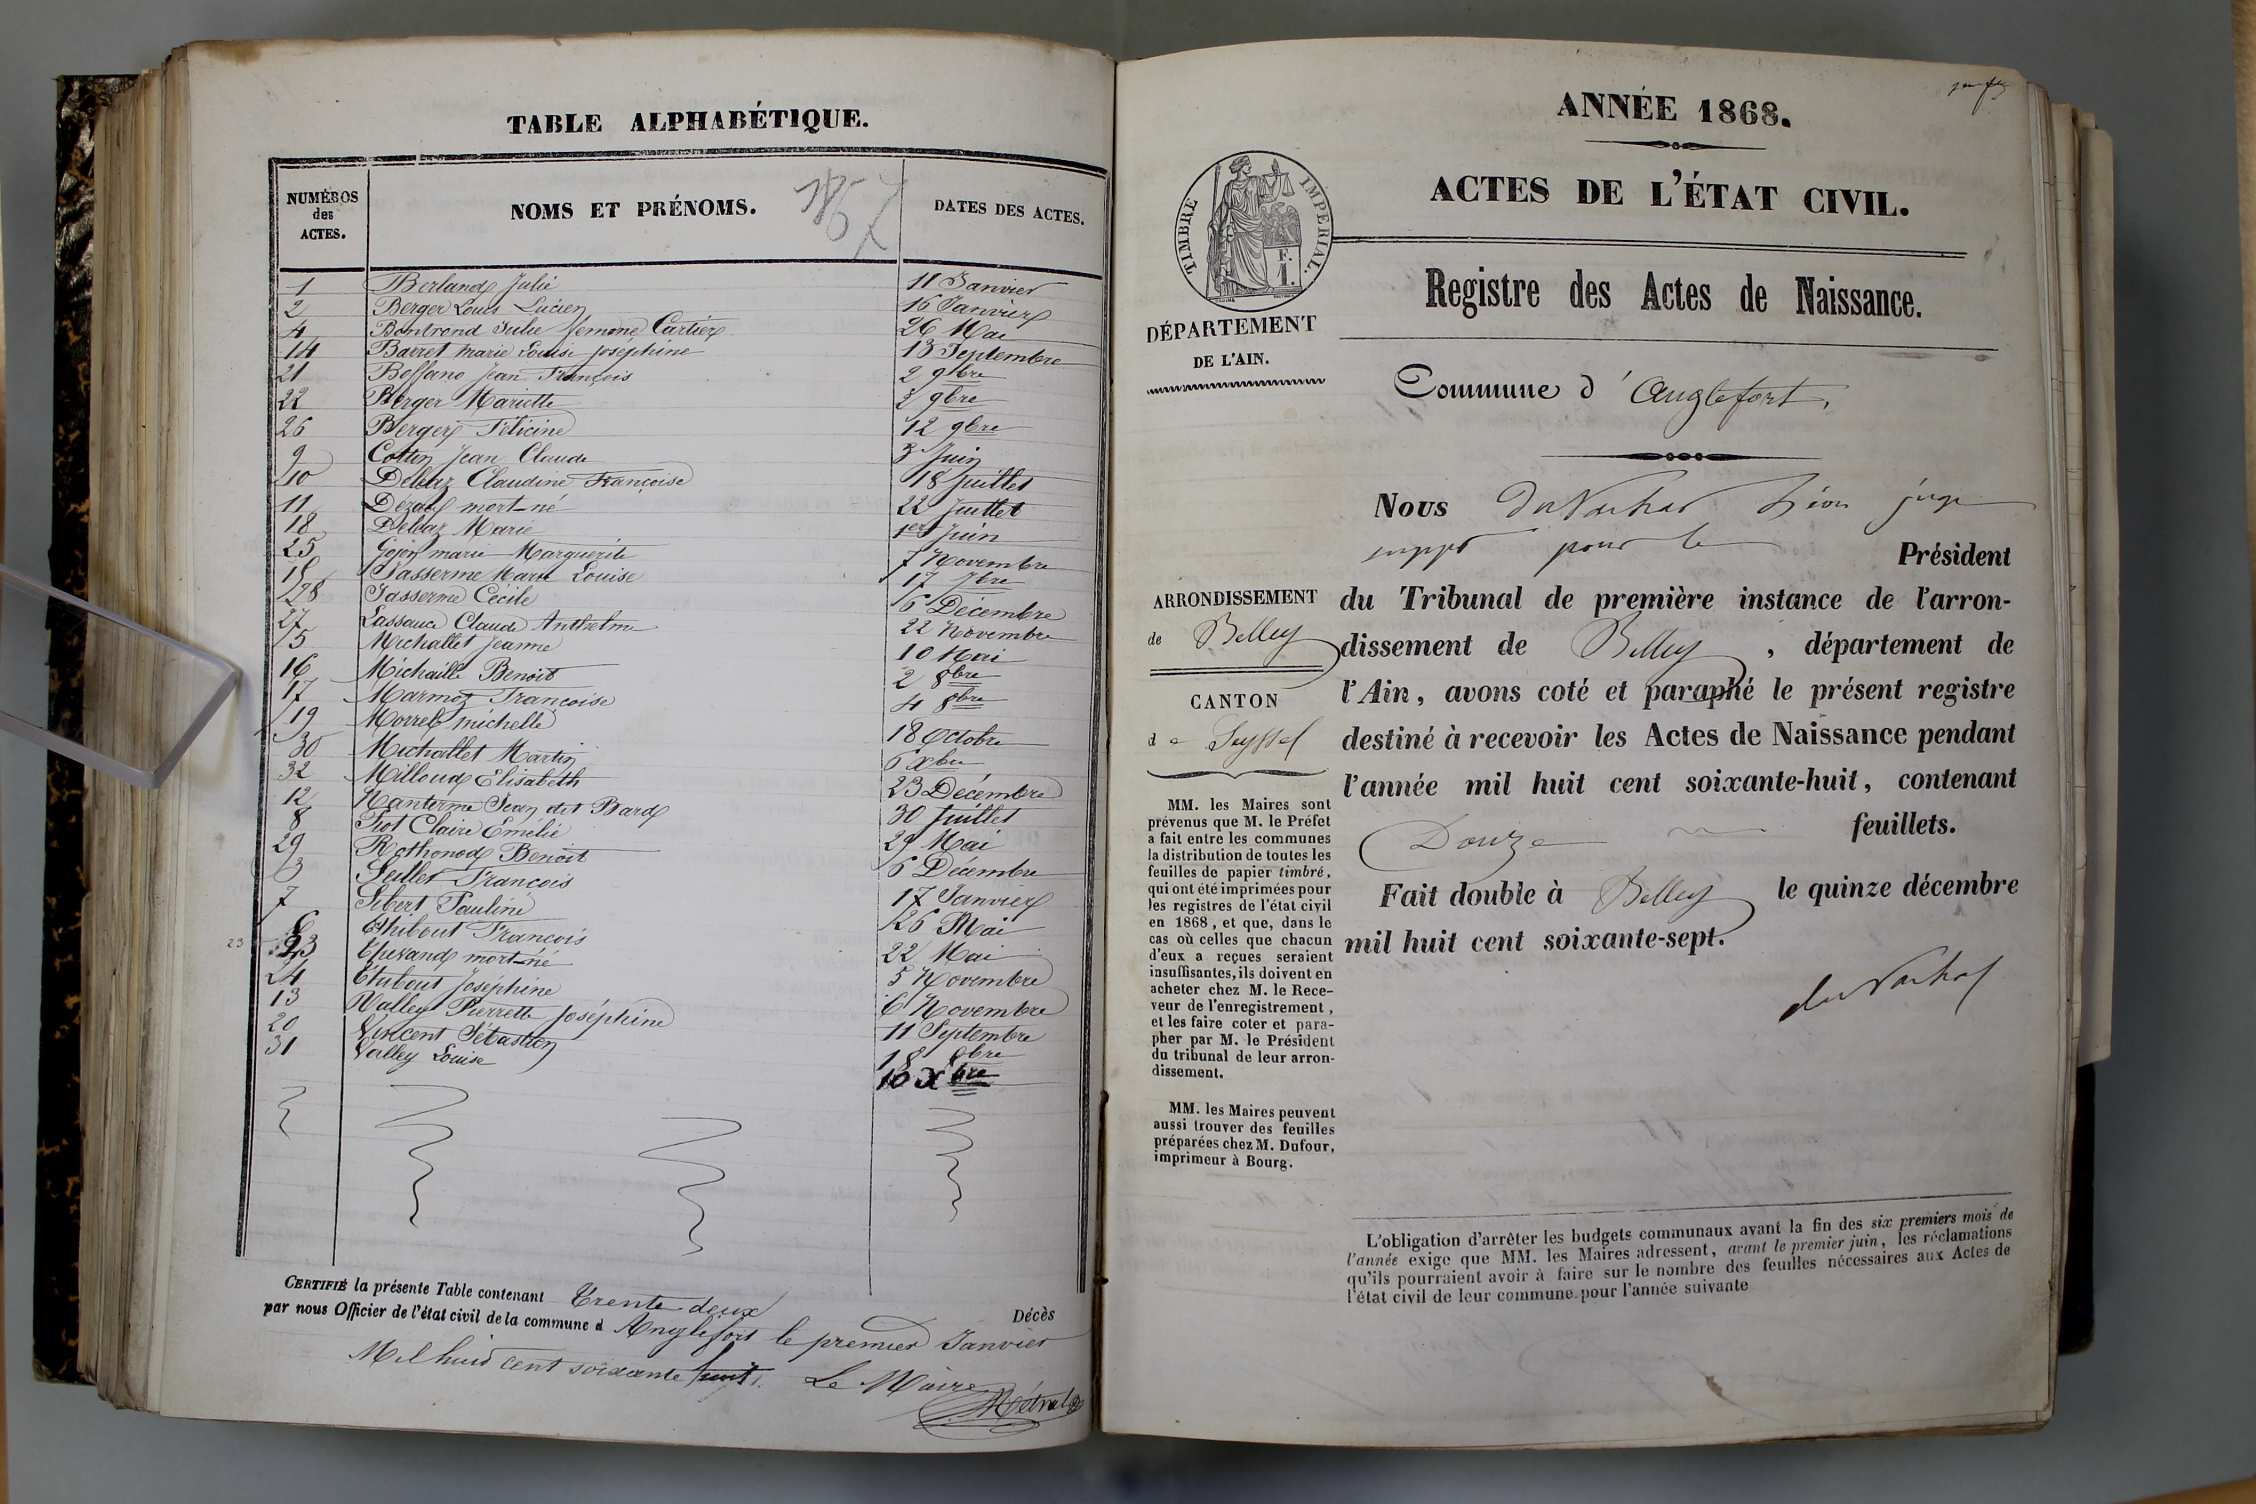 TABLE ALPHABÉTIQUE.
NUMÉROS des ACTES.
NOMS ET PRÉNOMS.
DATES DES ACTES.
1 Berland Julie 11 Janvier
2 Berger Louis Lucien 16 Janvier
4 Bontrond Julie femme Cartier 26 Mai
14 Barret marie Louise joséphine 13 Septembre
21 Boffano Jean François 2 9bre
22 Berger Mariette 3 9bre
26 Berger Félicine 12 9bre
9 Cottin Jean Claude 3 Juin
10 Delaz Claudine Françoise 18 Juillet
11 mort-né 22 Juillet
18 Delaz Marie 1er Juin
25 Gojon marie Marguerite 7 Novembre
Jasserme Marie Louise 17
28 Jasserme Cécile 6 Décembre
27 Lassauce Claude Anthelme 22 Novembre
5 Michallet Jeanne 10 Mai
16 Michaille Benoit 2 8bre
17 Marmoz Françoise 4 8bre
19 Morrel michelle 18 Octobre
30 Michallet Martin 6 Xbre
32 Milloud Elisabeth 23 Décembre
12 Nanterme Jean dit Bard 30 Juillet
8 Piot Claire Emélie 29 Mai
29 Rothonod Benoit 6 Décembre
3 Seillet François 17 Janvier
7 Sibert Pauline 26 Mai
6 Thibout François 22 Mai
23 mort-né 5 Novembre
24 Thibout Joséphine 6 Novembre
13 Valley Pierrette Joséphine 11 Septembre
20 Vincent Sébastien 18 8bre
31 Valley Louise 10 Xbre
23
CERTIFIÉ la présente Table contenant Trente deux Décès
par nous Officier de l'état civil de la commune d Anglefort le premier Janvier
Mil huit cent soixante huit. Le Maire
Métral
ANNÉE 1868.
ACTES DE L'ÉTAT CIVIL.
TIMBRE IMPÉRIAL.
F.
1.
Registre des Actes de Naissance.
DÉPARTEMENT
DE L'AIN.
Commune d' Anglefort,
Nous juge
suppt pour le Président
du Tribunal de première instance de l'arron-
dissement de Belley , département de
l'Ain, avons coté et paraphé le présent registre
destiné à recevoir les Actes de Naissance pendant
l'année mil huit cent soixante-huit, contenant
Douze feuillets.
Fait double à Belley le quinze décembre
mil huit cent soixante-sept.
ARRONDISSEMENT
de Belley
CANTON
de Seyssel
MM. les Maires sont
prévenus que M. le Préfet
a fait entre les communes
la distribution de toutes les
feuilles de papier timbré,
qui ont été imprimées pour
les registres de l'état civil
en 1868, et que, dans le
cas où celles que chacun
d'eux a reçues seraient
insuffisantes, ils doivent en
acheter chez M. le Rece-
veur de l'enregistrement,
et les faire coter et para-
pher par M. le Président
du tribunal de leur arron-
dissement.
MM. les Maires peuvent
aussi trouver des feuilles
préparées chez M. Dufour,
imprimeur à Bourg.
L'obligation d'arrêter les budgets communaux avant la fin des six premiers mois de
l'année exige que MM. les Maires adressent, avant le premier juin, les réclamations
qu'ils pourraient avoir à faire sur le nombre des feuilles nécessaires aux Actes de
l'état civil de leur commune pour l'année suivante